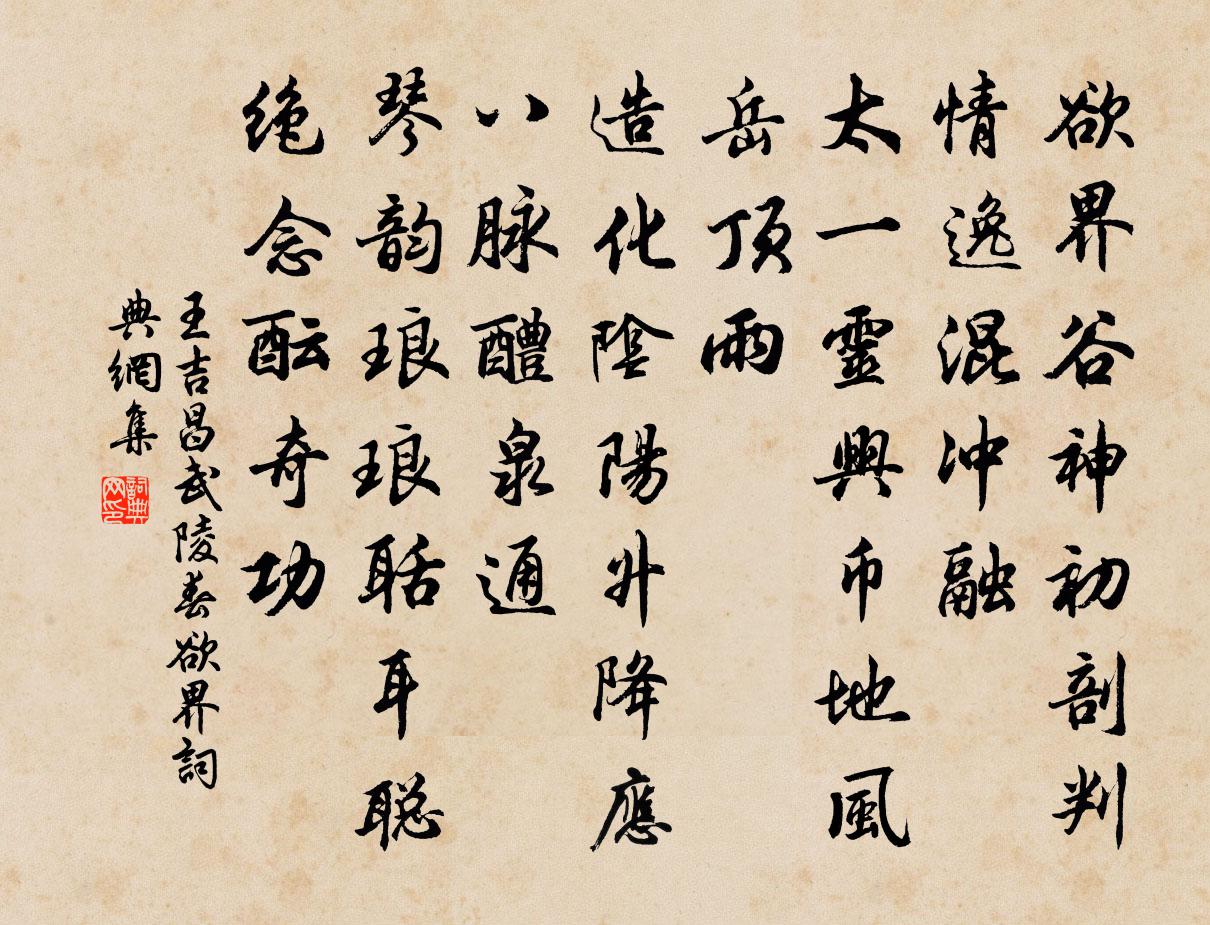 欲界谷神初剖判
情逸混冲融
太一靈興币地風
岳頂雨
造化陰陽升降應
八脉醴泉通
琴韵琅琅聒耳聪
绝念酝奇功
王吉昌武陵春欲界詞
典網集
詞典网印